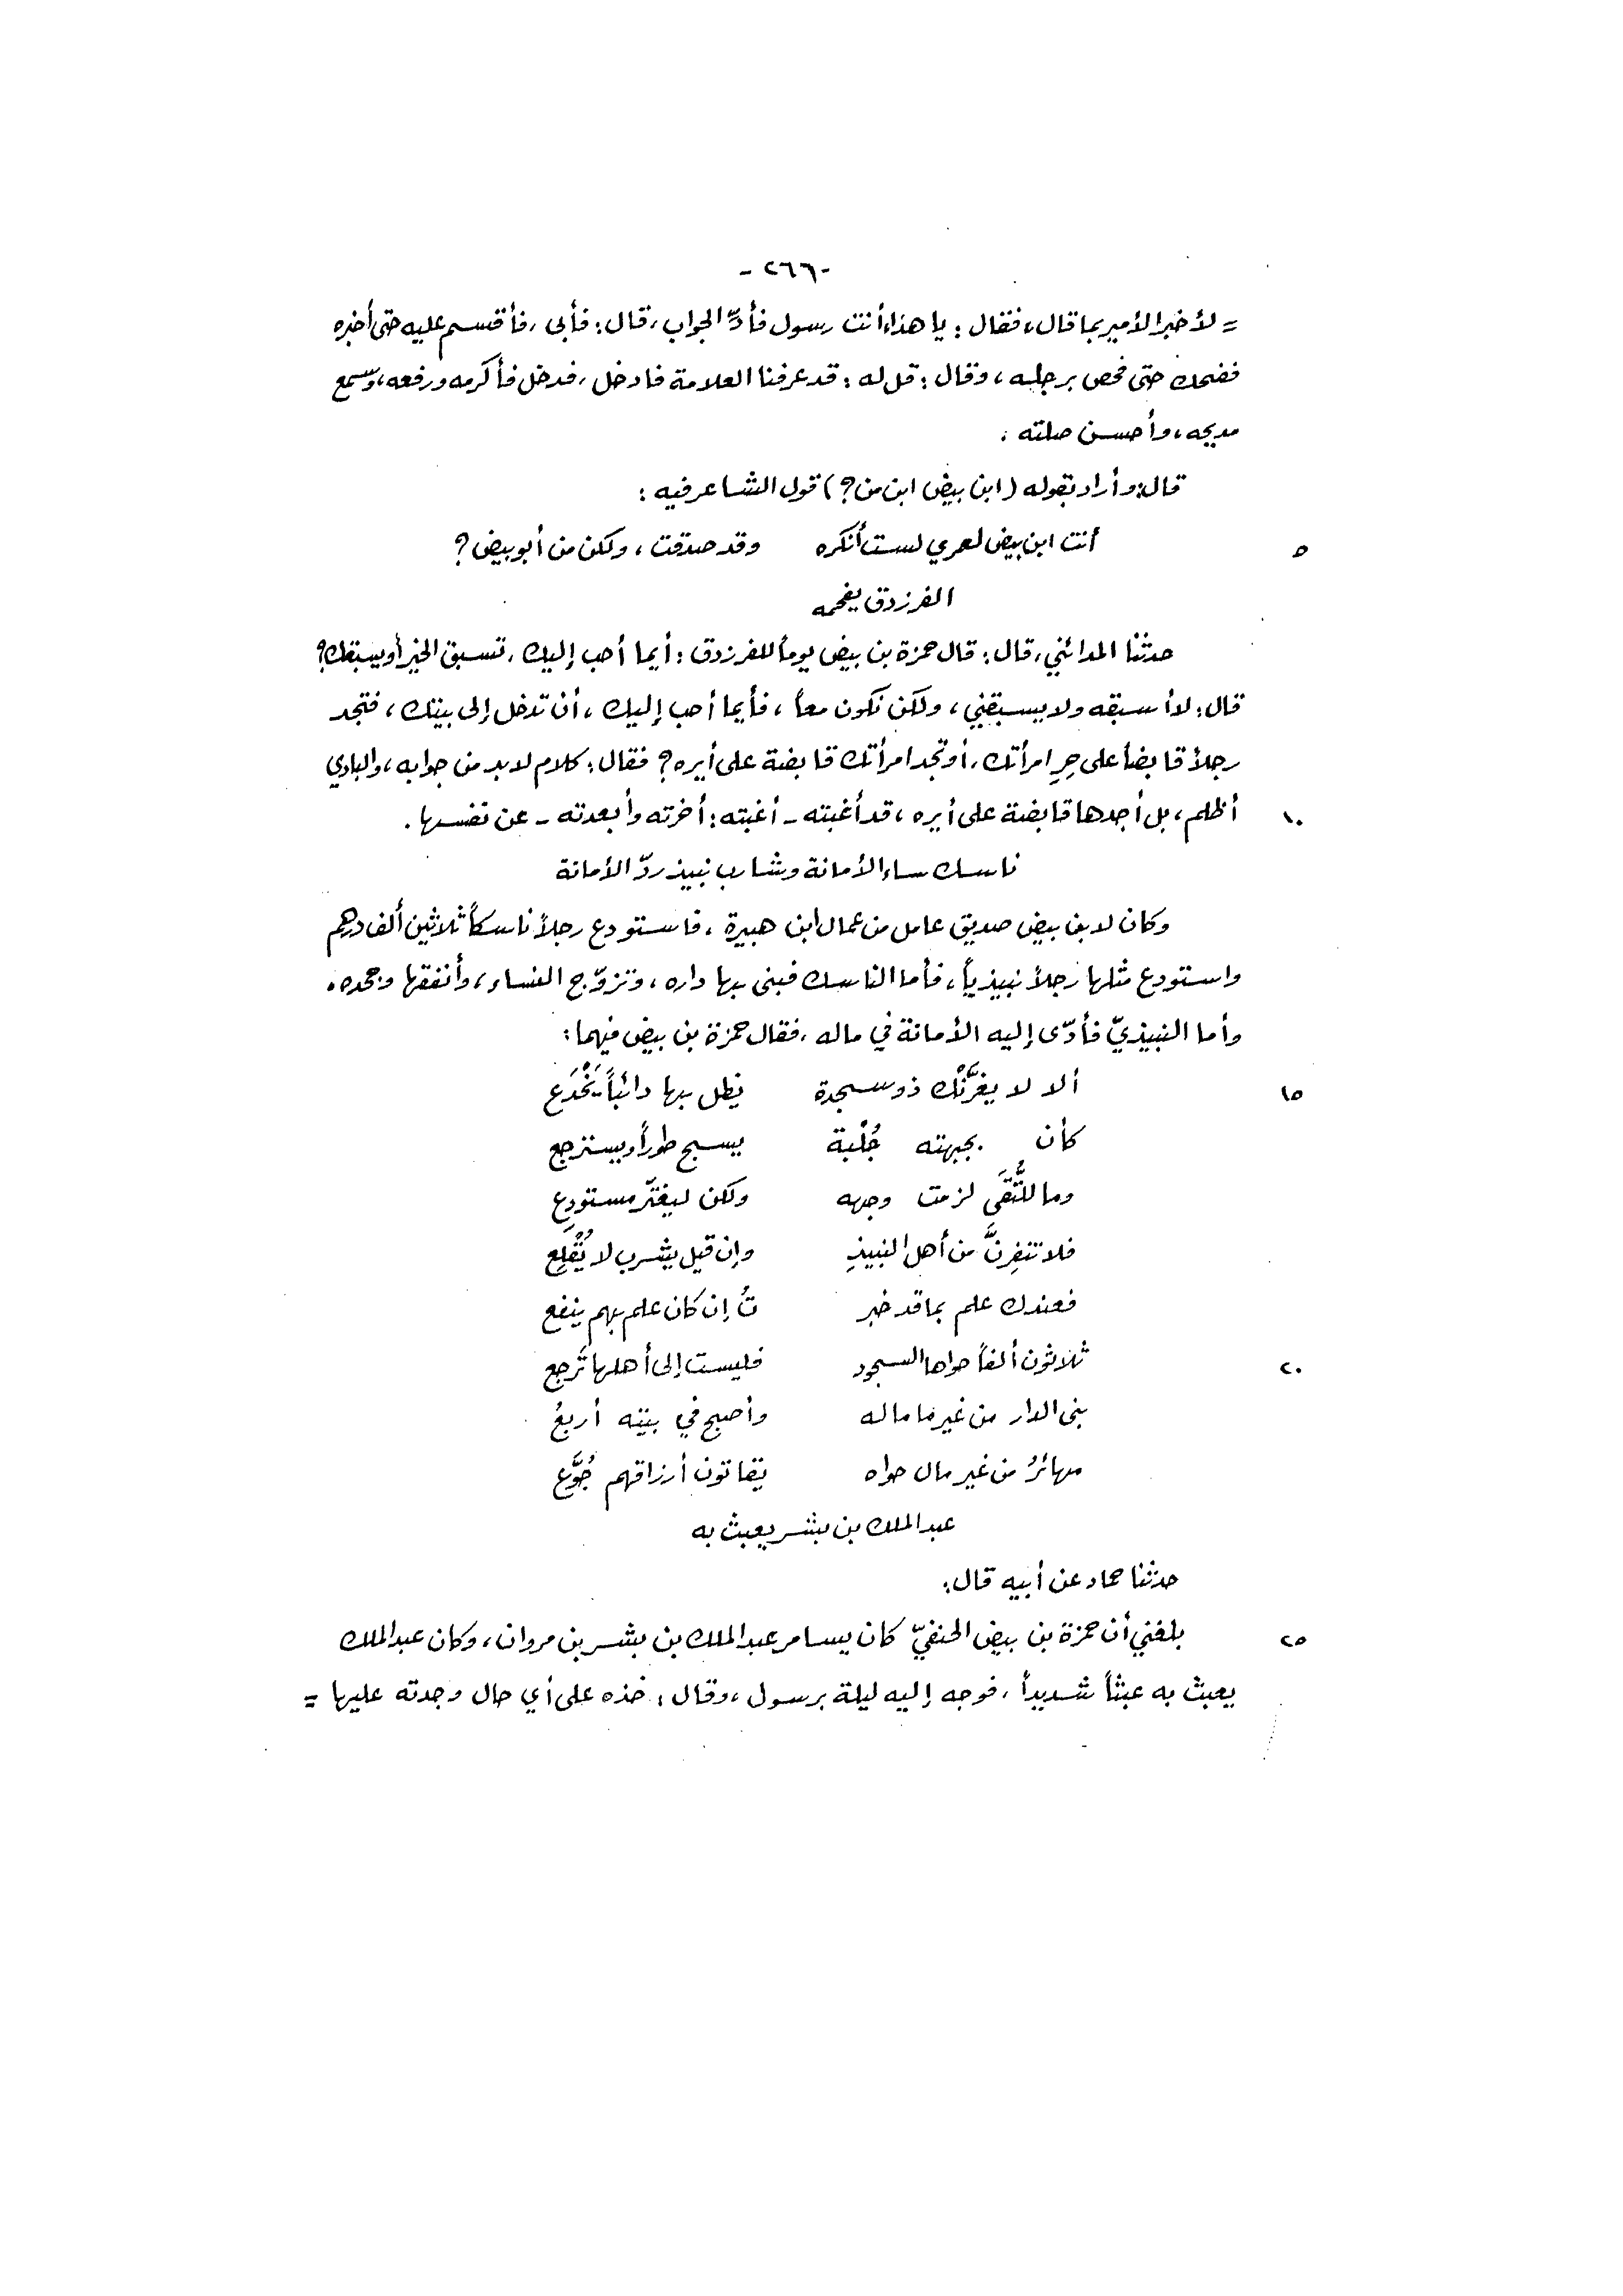 - ٢٦٦ -
= لأخبر الأمير بما قال، فقال: يا هذا، أنت رسول فأدِّ الجواب، قال: فأبى، فأقسم عليه حتى أخبره
فضحك حتى فحص برجليه، وقال: قل له: قد عرفنا العلامة فادخل، فدخل فأكرمه ورفعه، وسمع
مديحه، وأحسن صلته.
قال: وأراد بقوله (ابن بيض ابن من؟) قول الشاعر فيه:
أنت ابن بيض لعمري لست أنكره وقد صدقت، ولكن من أبو بيض؟ ٥
الفرزدق يفحمه
حدثنا المدائني، قال: قال حمزة بن بيض يوماً للفرزدق: أيما أحب إليك، تسبق الخير أو يسبقك؟
قال: لا أسبقه ولا يسبقني، ولكن نكون معاً، فأيما أحب إليك، أن تدخل إلى بيتك، فتجد
رجلاً قابضاً على حِرِ امرأتك، أو تجد امرأتك قابضة على أيره؟ فقال: كلام لا بد من جوابه، والبادي
أظلم، بل أجدها قابضة على أيره، قد أغبته - أغبته: أخرته وأبعدته - عن نفسها. ١٠
ناسك ساء الأمانة وشارب نبيذ ردّ الأمانة
وكان لابن بيض صديق عامل من عمال ابن هبيرة، فاستودع رجلاً ناسكاً ثلاثين ألف درهم
واستودع مثلها رجلاً نبيذياً، فأما الناسك فبنى بها داره، وتزوّج النساء، وأنفقها وجحده،
وأما النبيذيّ فأدّى إليه الأمانة في ماله، فقال حمزة بن بيض فيهما:
ألا لا يغرَّنْك ذو سجدة يظل بها دائباً يَخْدَع ١٥
كأن بجبهته جُلْبة يسبح طوراً ويسترجع
وما للتُّقَى لزمت وجهه ولكن ليغترّ مستودِع
فلا تنفِرنَّ من أهل النبيذِ وإن قيل يشرب لا يُقْلِع
فعندك علم بما قد خبر تُ إن كان علم بهم ينفع
ثلاثون ألفاً حواها السجود فليست إلى أهلها تَرجع ٢٠
بنى الدار من غير ما ماله وأصبح في بيته أربعُ
مهائرُ من غير مال حواه يقاتون أرزاقهم جُوَّع
عبد الملك بن بشر يعبث به
حدثنا حماد عن أبيه قال:
بلغني أن حمزة بن بيض الحنفيّ كان يسامر عبد الملك بن بشر بن مروان، وكان عبد الملك ٢٥
يعبث به عبثاً شديداً، فوجه إليه ليلة برسول، وقال: خذه على أي حال وجدته عليها =